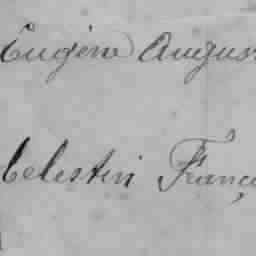 Eugène Augus
Celestin Franç